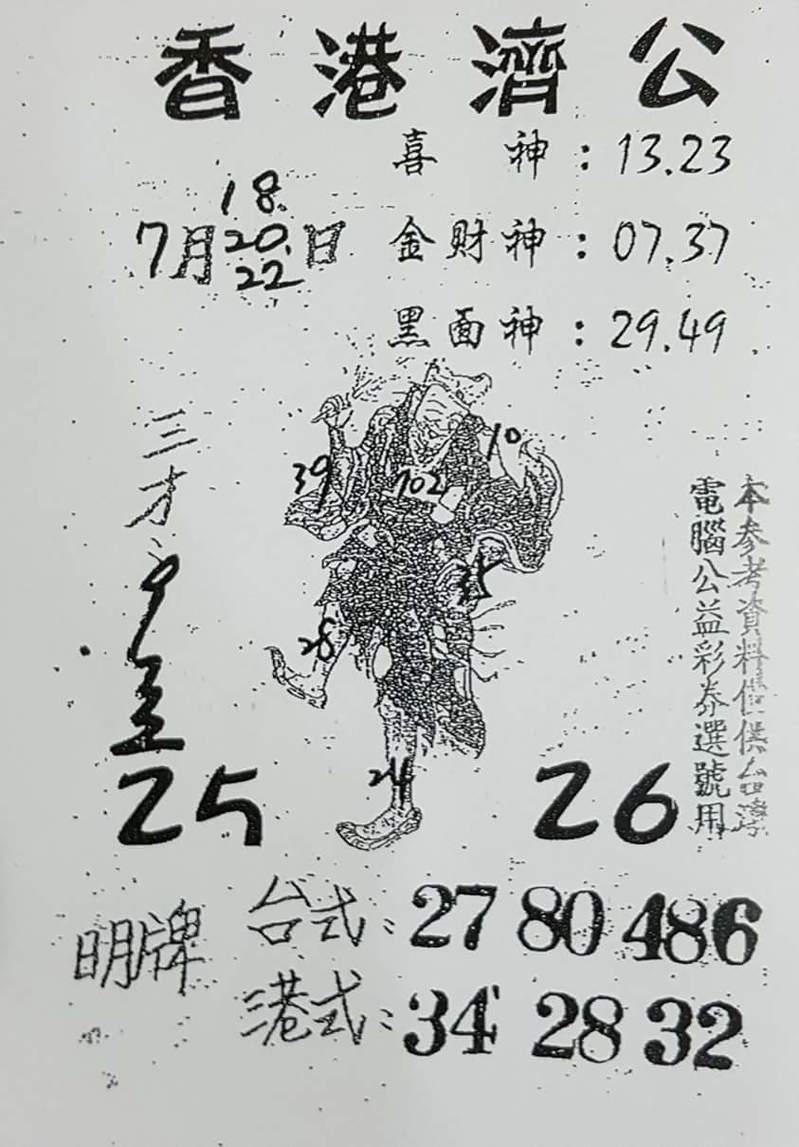 香港濟公
喜神：13.23
7月18.20.22日
金財神：07.37
黑面神：29.49
三才
39
10
702
35
28
24
25
26
本參考資料僅供台灣
電腦公益彩券選號用
明牌
台式：27 80 486
港式：34 28 32